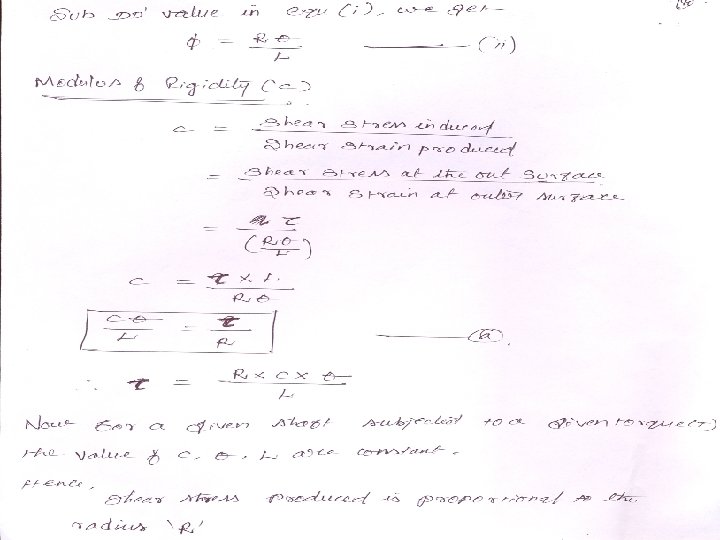 Sub DD' value in equ (i), we get
ϕ = Rθ / L ——— (ii)
Modulus of Rigidity (C)
C = Shear stress induced / Shear strain produced
= Shear stress at the out surface / Shear strain at outer surface
= τ / (Rθ / L)
C = τ × L / Rθ
Cθ / L = τ / R ——— (a).
∴ τ = R × C × θ / L
Now for a given shaft subjected to a given torque (T)
the value of C, θ, L are constant.
Hence,
Shear stress produced is proportional to the
radius 'R'